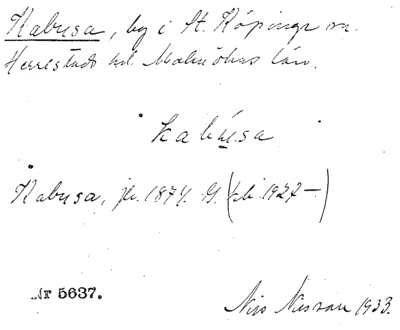 Kabusa, by i St. Köpinge sn.
Herrestads hd. Malmöhus län.
kabúsa
Kabusa, jb. 1874. G. (jb. 1927—)
Nr 5637.
Nils Nilsson 1933.